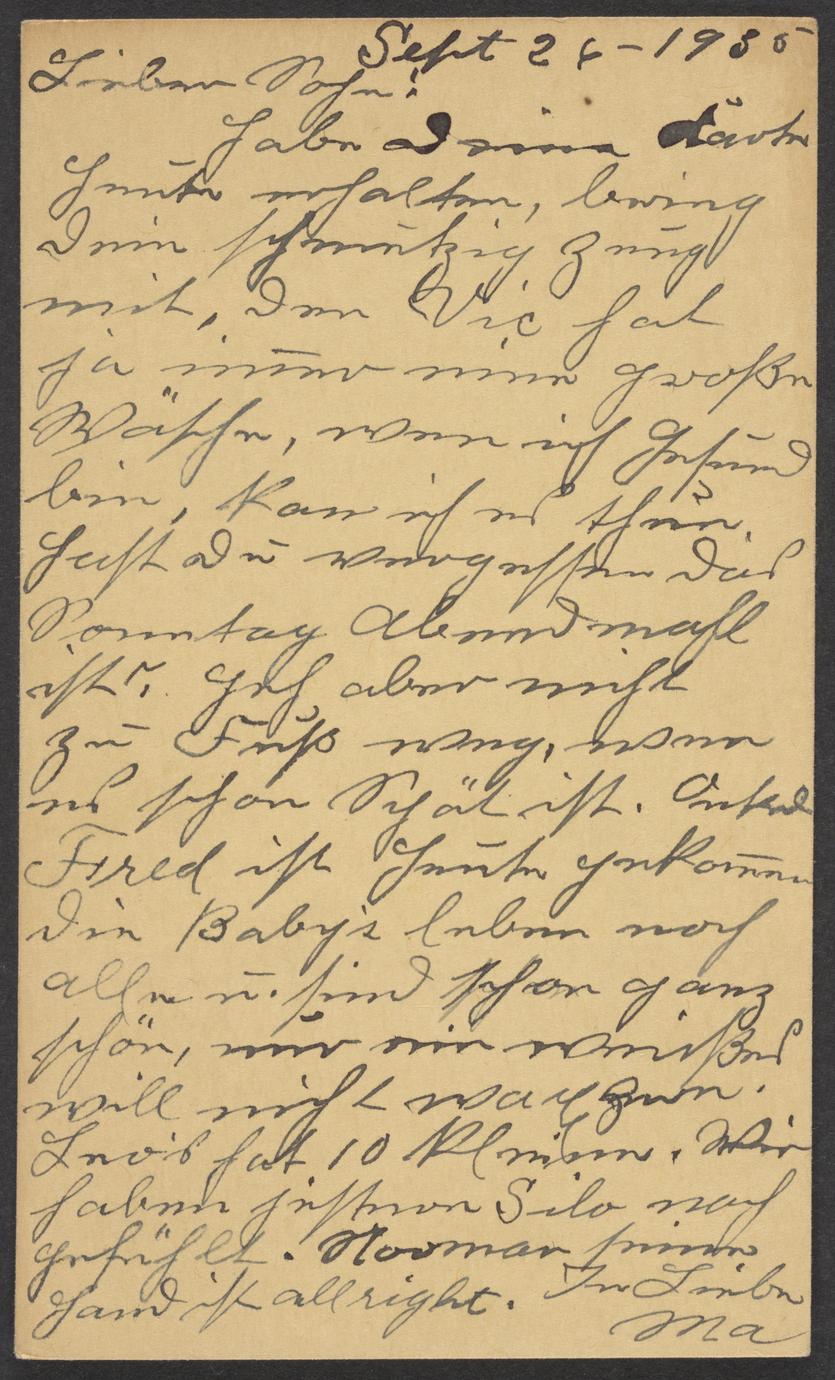 Sept 26-1935
Lieben Sohn!
Habe Deine Kärte
Heute erhalten, bring
Dein schmutzig Zeug
mit, den Vic hat
ja im̅er eine große
Wäsche, wen ich Gesund
bin, kan ich es thun.
Hast du vergessen das
Sonntag Abendmahl
ist? Geh aber nicht
zu Fuß weg, wen
es schon Spät ist. Onkel
Fred ist Heute gekom̅en
Die Baby's leben noch
alle u. sind schon ganz
schön, nur ein weißes
will nicht wachzen.
Leo's hat 10 Kleine. Wir
haben jestern Silo nach
gefühlt. Norman seine
Hand ist allright. In Liebe
Ma